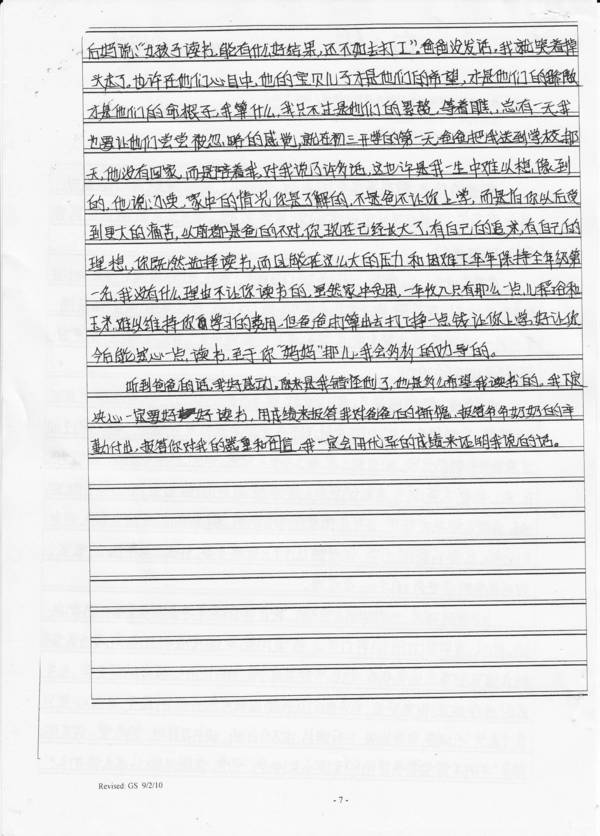 后妈说:"女孩子读书,能有什么好结果,还不如去打工"。爸爸没发话,我就哭着掉
头走了。也许在他们心目中,他的宝贝儿子才是他们的希望,才是他们的骄傲
才是他们的命根子,我算什么,我只不过是他们的累赘,等着瞧,总有一天我
也要让他们尝尝被忽略的感觉,就在初三开学的第一天,爸爸把我送到学校,那
天,他没有回家,而是陪着我,对我说了许多话,这也许是我一生中难以想像到
的,他说:小英,家中的情况你是了解的,不是爸不让你上学,而是怕你以后受
到更大的痛苦,以前都是爸的不对,你现在已经长大了,有自己的追求,有自己的
理想,你既然选择读书,而且能在这么大的压力和困难下年年保持全年级第
一名,我没有什么理由不让你读书的,虽然家中贫困,一年收入只有那么一点儿稻谷和
玉米,难以维持你学习的费用,但爸爸打算出去打工挣一点钱让你上学,好让你
今后能安心一点读书,至于你"妈妈"那儿,我会劝导的。
听到爸爸的话,我好感动,原来是我错怪他了,他是那么希望我读书的,我下定
决心一定要好好读书,用成绩来报答我对爸爸的,报答爷爷奶奶的辛
勤付出,报答你对我的器重和,我一定会用优异的成绩来证明我说的话。
Revised: GS 9/2/10
- 7 -